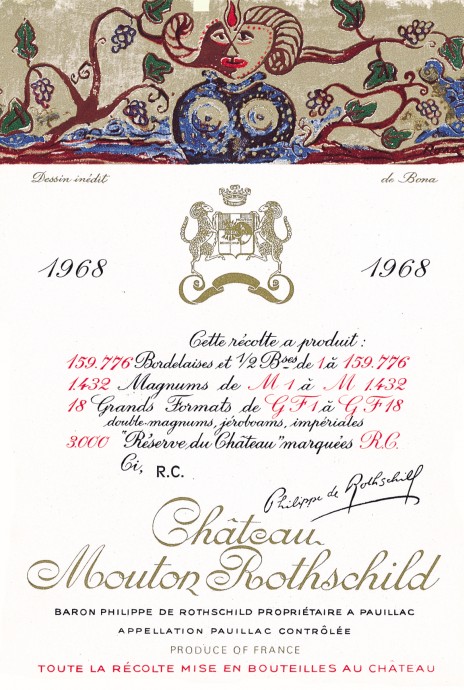 Dessin inédit
de Bona
1968
1968
Cette récolte a produit :
159.776 Bordelaises et 1/2 Bses de 1 à 159.776
1.432 Magnums de M 1 à M 1.432
18 Grands Formats de G F 1 à G F 18
double-magnums, jéroboams, impériales
3.000 "Réserve du Château" marquées R.C.
Ci, R.C.
Philippe de Rothschild
Château
Mouton Rothschild
BARON PHILIPPE DE ROTHSCHILD PROPRIÉTAIRE A PAUILLAC
APPELLATION PAUILLAC CONTRÔLÉE
PRODUCE OF FRANCE
TOUTE LA RÉCOLTE MISE EN BOUTEILLES AU CHÂTEAU